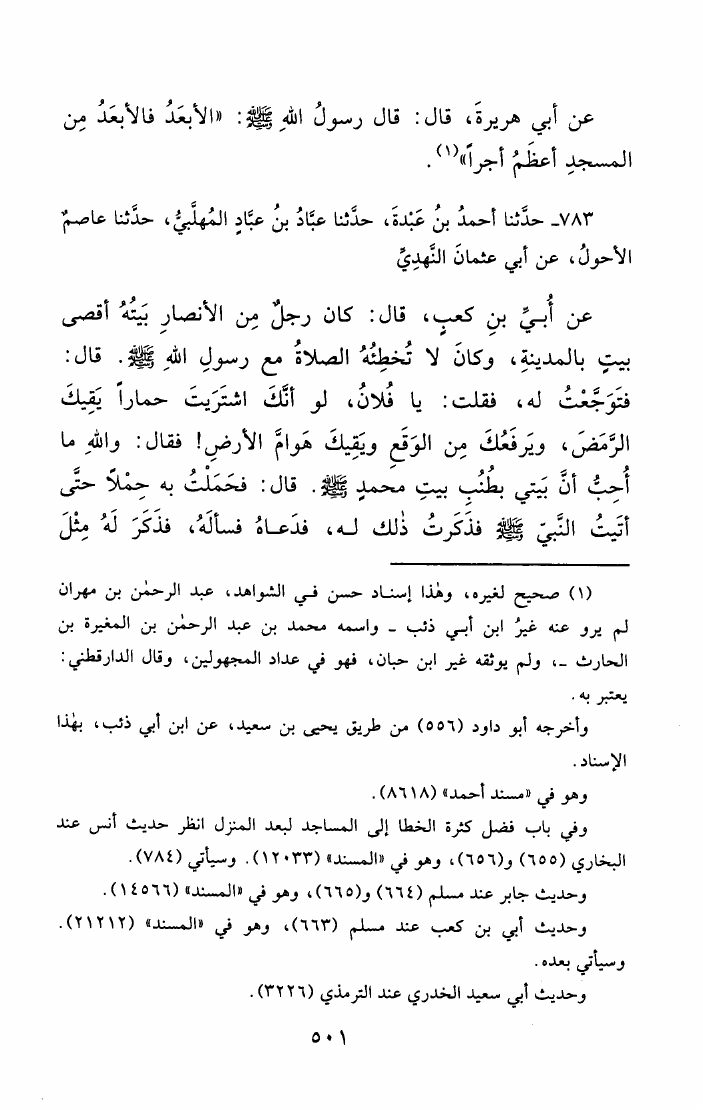 عن أبي هريرةَ، قال: قال رسولُ اللهِ ﷺ: «الأبعَدُ فالأبعَدُ مِن
المسجدِ أعظَمُ أجراً»(١).
٧٨٣ـ حدَّثنا أحمدُ بنُ عَبْدةَ، حدَّثنا عبَّادُ بنُ عبَّادٍ المُهلَّبيُّ، حدَّثنا عاصمٌ
الأحولُ، عن أبي عثمانَ النَّهدِيِّ
عن أُبـيِّ بنِ كعبٍ، قال: كان رجلٌ مِن الأنصارِ بَيتُهُ أقصى
بيتٍ بالمدينةِ، وكانَ لا تُخطِئُهُ الصلاةُ مع رسولِ اللهِ ﷺ. قال:
فتَوَجَّعْتُ له، فقلت: يا فُلانُ، لو أنَّكَ اشتَرَيتَ حماراً يَقِيكَ
الرَّمَضَ، ويَرفَعُكَ مِن الوَقَعِ ويَقِيكَ هَوامَّ الأرضِ! فقال: واللهِ ما
أُحِبُّ أنَّ بَيتي بطُنُبِ بيتِ محمدٍ ﷺ. قال: فحَمَلْتُ به حِمْلاً حتَّى
أتَيتُ النَّبيّ ﷺ فذَكَرتُ ذٰلك لـه، فدَعـاهُ فسألَهُ، فذكَرَ لَهُ مِثْلَ
(١) صحيح لغيره، وهٰذا إسنـاد حسن فـي الشواهد، عبد الرحمٰن بن مهران
لم يرو عنه غيرُ ابن أبـي ذئب ـ واسمه محمد بن عبد الرحمٰن بن المغيرة بن
الحارث ـ، ولم يوثقه غير ابن حبان، فهو في عداد المجهولين، وقال الدارقطني:
يعتبر به.
وأخرجه أبو داود (٥٥٦) من طريق يحيى بن سعيد، عن ابن أبي ذئب، بهٰذا
الإسناد.
وهو في «مسند أحمد» (٨٦١٨).
وفي باب فضل كثرة الخطا إلى المساجد لبعد المنزل انظر حديث أنس عند
البخاري (٦٥٥) و(٦٥٦)، وهو في «المسند» (١٢٠٣٣). وسيأتي (٧٨٤).
وحديث جابر عند مسلم (٦٦٤) و(٦٦٥)، وهو في «المسند» (١٤٥٦٦).
وحديث أبي بن كعب عند مسلم (٦٦٣)، وهو في «المسند» (٢١٢١٢).
وسيأتي بعده.
وحديث أبي سعيد الخدري عند الترمذي (٣٢٢٦).
٥٠١